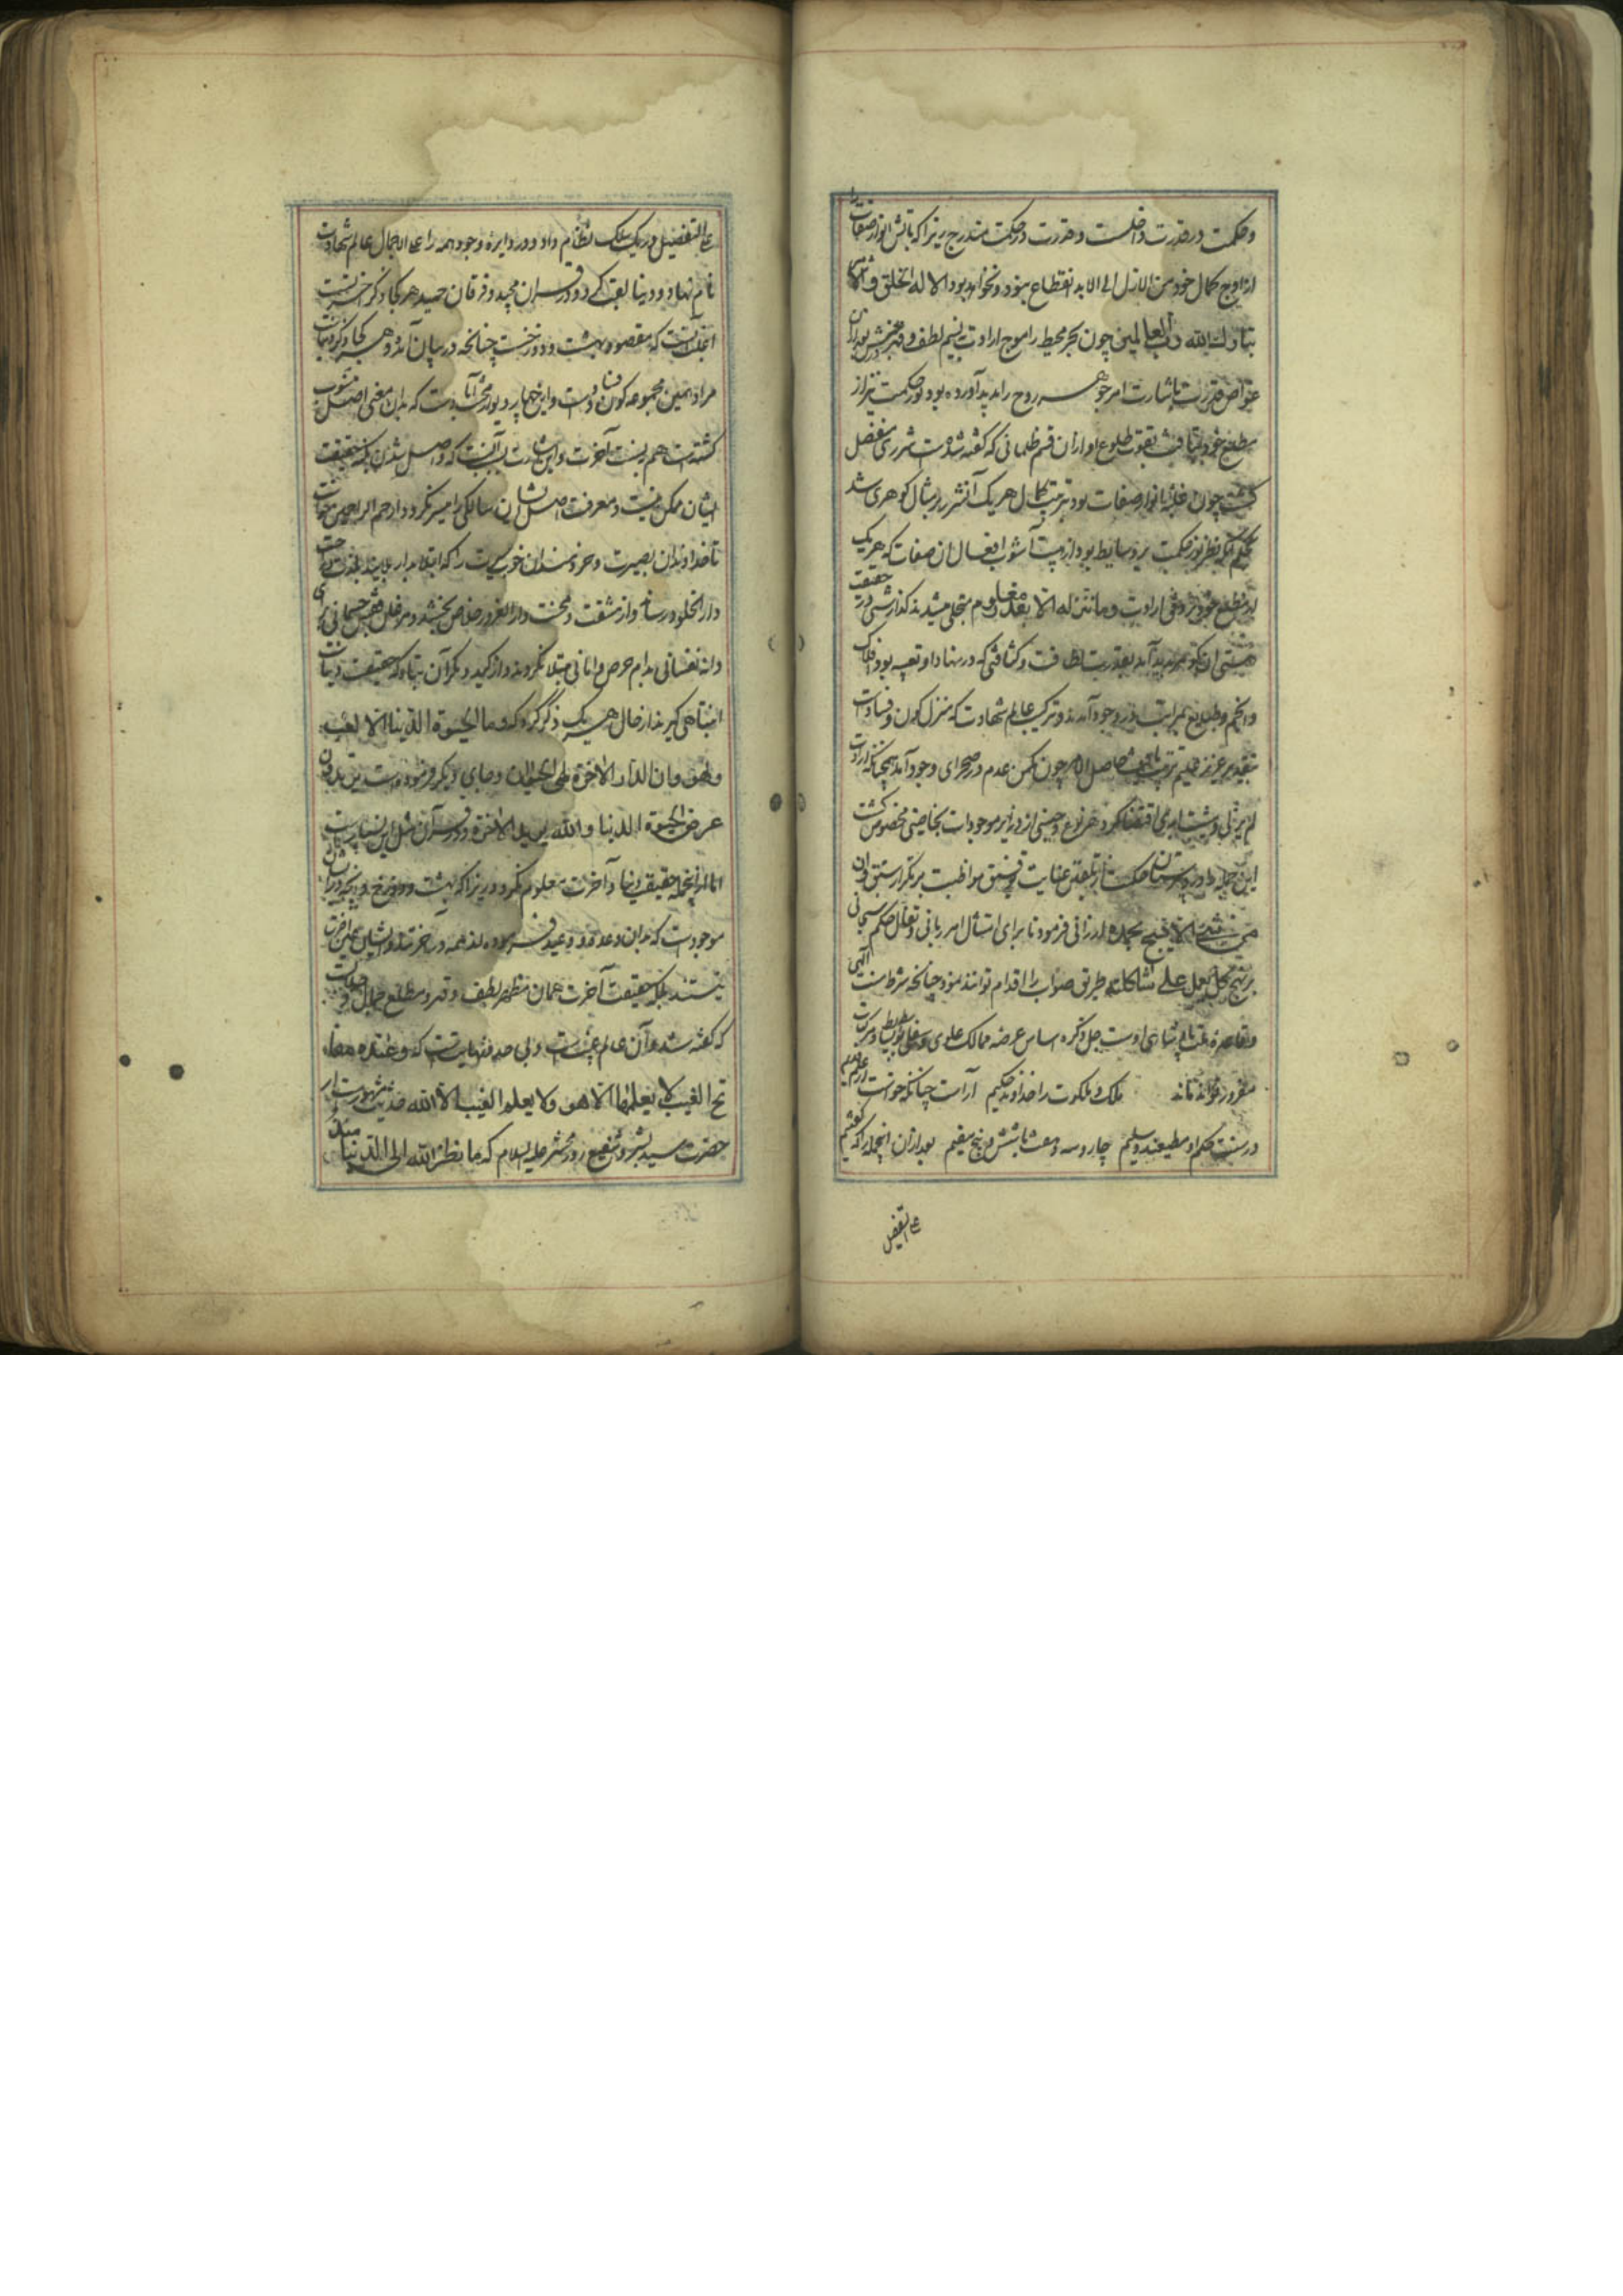 و حکمت در قدرت داخلست و قدرت در حکمت مندرج زیرا که تابش انوار صفات را
از اوج کمال خود من الازل الی الابد انقطاع نبود و نخواهد بود الا له الخلق و الامر
تبارک الله رب العالمین چون بحر محیط را موج ارادت بنسیم لطف و قهر
غواص قدرت باشارت امر جوهر روح را پدید آورده بود نور حکمت نیز از
مطلع خود بتافت بقوت طلوع او ازان قسم ظلمانی که گفته شدست شرری منفصل
گشت چون غلبه انوار صفات بود بتربیت کمال هر یک آن شرر بر مثال گوهری شد
بحکم آنکه نظر نور حکمت بر وسایط بود از هیبت آشوب افعال ان صفات که هر یک
از مطلع خود بر وفق ارادت و ما ننزله الا بقدر معلوم متجلی میشدند گدازشی در حقیقت
هستی ان گوهر پدید آمد بقدرت لطافت و کثافتی که در نهاد او تعبیه بود افلاک
و انجم و طبایع بمراتب در وجود آمدند و ترکیب عالم شهادت که منزل کون و فسادست
بتقدیر عزیز علیم ترتیب یافت حاصل الامر چون از مکمن عدم در صحرای وجود آمد همچنانکه ارادت
لم یزلی و مشیت ابدی اقتضا کرد هر نوع و جنسی از دایر موجودات بخاصیتی مخصوص گشت
این جمله را در دبیرستان حکمت از تلقین عنایت توفیق مواظبت بر تکرار سبق و ان
من شیء الا یسبح بحمده ارزانی فرمود تا برای امتثال امر ربانی و تعلل حکم سبحانی
بر نهج کل یعمل علی شاکلته طریق صواب را اقدام توانند نمود چنانچه شرط سنت الهی
و قاعده ملت پادشاهی اوست جل ذکره اساس عرصه ممالک علوی و سفلی بوسایط و مرکبات
مفروز نماند ملک و ملکوت را خداوند حکیم آراست چنانکه خواست از علم قدیم
در سنت حکم او مطیعند و سلیم چار و سه و هشت با شش و پنج مقیم بعد ازان اینجمله را که گفتیم
علی التفصیل
علی التفصیل در یک سلک نظام داد و در دایره وجود همه را علی الاجمال عالم شهادت
نام نهاد و دنیا لقب کرد و در قرآن مجید و فرقان حمید هر کجا ذکر آخرتست
انست که مقصود بهشت و دوزخست چنانچه در بیان آمد و هر کجا ذکر دنیاست
مراد همین مجموعه کون و فسادست و این جهان بر دیو محنت آبادست که بدان معنی اصل منسوب
گشتست هم نیست آخرت و این اشارت بآنست که واصل شدن بکنه حقیقت
ایشان ممکن نیست و معرفت اصل ایشان سالکی را میسر نگردد ارحم الراحمین خواست
تا خداوندان بصیرت و خردمندان خوب سیرت را که ابتلا بدار بلایند بلذت و راحت
دار الخلود رساند و از مشقت و محنت دار الغرور خلاص بخشد و مرغ دل قفس جسمانی برای
دانه نفسانی بدام حرص و امانی مبتلا نگردند و از کید و مکر آن تباه که حقیقت دنیاست
انتباهی گیرند از حال هر یک ذکر کرد که و ما الحیوة الدنیا الا لعب
و لهو و ان الدار الاخرة لهی الحیوان و جای دیگر فرموده است تریدون
عرض الحیوة الدنیا و الله یرید الاخرة و در قرآن مثل این بسیارست
اما از اینجمله حقیقت دنیا و آخرت معلوم نگردد زیرا که بهشت و دوزخ و آنچه در ایشان
موجودست که بدان وعد و وعید فرموده‌اند همه در آخرتند و ایشان عین آخرت
نیستند بلکه حقیقت آخرت همان مظهر لطف و قهر و مطلع جمال و جلالست
که گفته شد و آن عالم غیبست و بی حد و نهایتست که و عنده مفا
تح الغیب لا یعلمها الا هو و لا یعلم الغیب الا الله حدیث مشهورست از
حضرت سید بشر و شفیع روز محشر علیه السلام که ما نظر الله الی الدنیا منذ